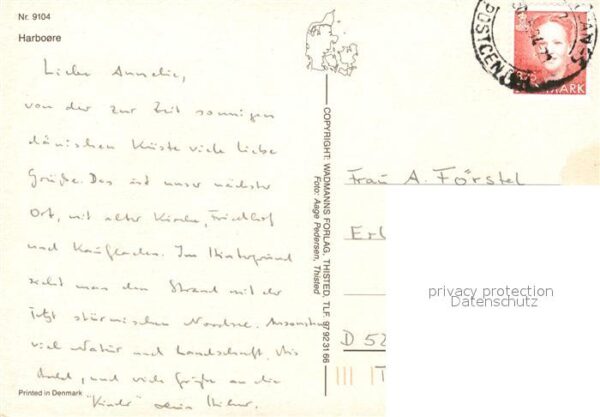 Nr. 9104
Harboøre
Liebe Annelie,
von der zur Zeit sonnigen
dänischen Küste viele liebe
Grüße. Das ist unser nächster
Ort, mit alter Kirche, Friedhof
und Kaufladen. Im Hintergrund
sieht man den Strand mit der
jetzt stürmischen Nordsee. Ansonsten
viel Natur und Landschaft. Bis
bald, und viele Grüße an die
"Kinder"
Printed in Denmark
COPYRIGHT: WADMANNS FORLAG, THISTED. TLF. 97 92 31 66
Foto: Aage Pedersen, Thisted
POSTCEN
DANMARK
Frau A. Förstel
Erl
D 52
privacy protection
Datenschutz